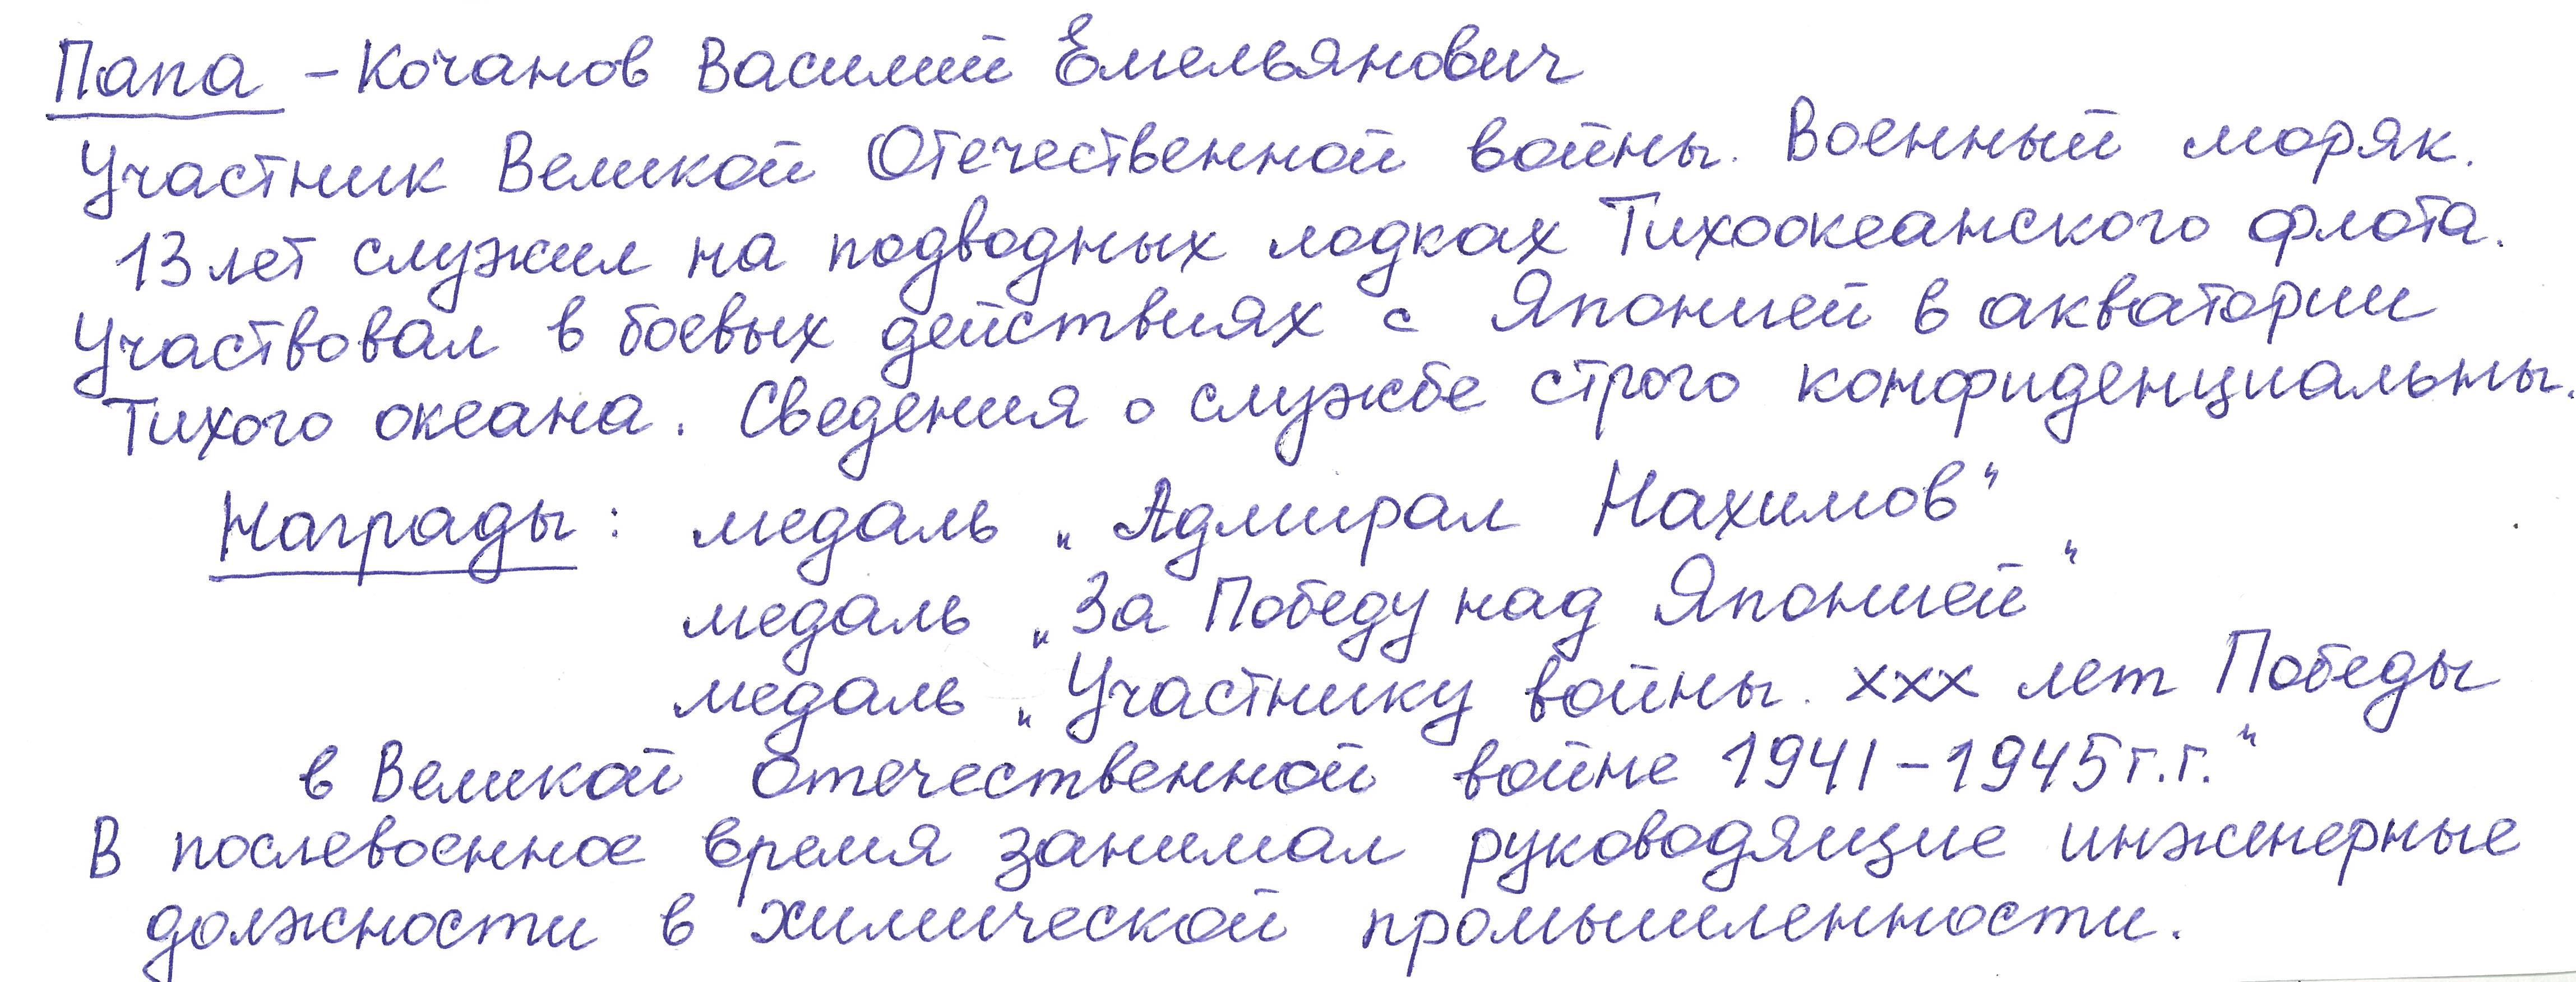 Папа – Кочанов Василий Емельянович
Участник Великой Отечественной войны. Военный моряк.
13 лет служил на подводных лодках Тихоокеанского флота.
Участвовал в боевых действиях с Японией в акватории
Тихого океана. Сведения о службе строго конфиденциальны.
Награды: медаль „Адмирал Нахимов“
медаль „За Победу над Японией“
медаль „Участнику войны. ххх лет Победы
в Великой отечественной войне 1941–1945 г.г.“
В послевоенное время занимал руководящие инженерные
должности в химической промышленности.